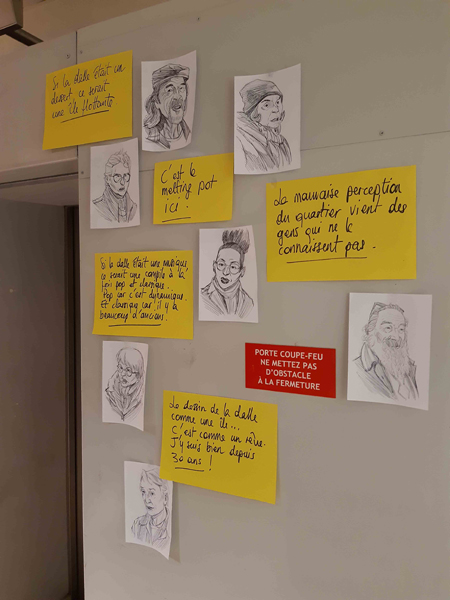 Si la dalle était un
dessert, ce serait
une île flottante
C'est le
melting pot
ici !
La mauvaise perception
du quartier vient des
gens qui ne le
connaissent pas.
Si la dalle était une musique,
ce serait une compil à la
fois pop et classique.
Pop car c'est dynamique.
Et classique car il y a
beaucoup d'anciens.
PORTE COUPE-FEU
NE METTEZ PAS
D'OBSTACLE
À LA FERMETURE
Le dessin de la dalle
comme une île...
C'est comme un rêve.
J'y suis bien depuis
30 ans !